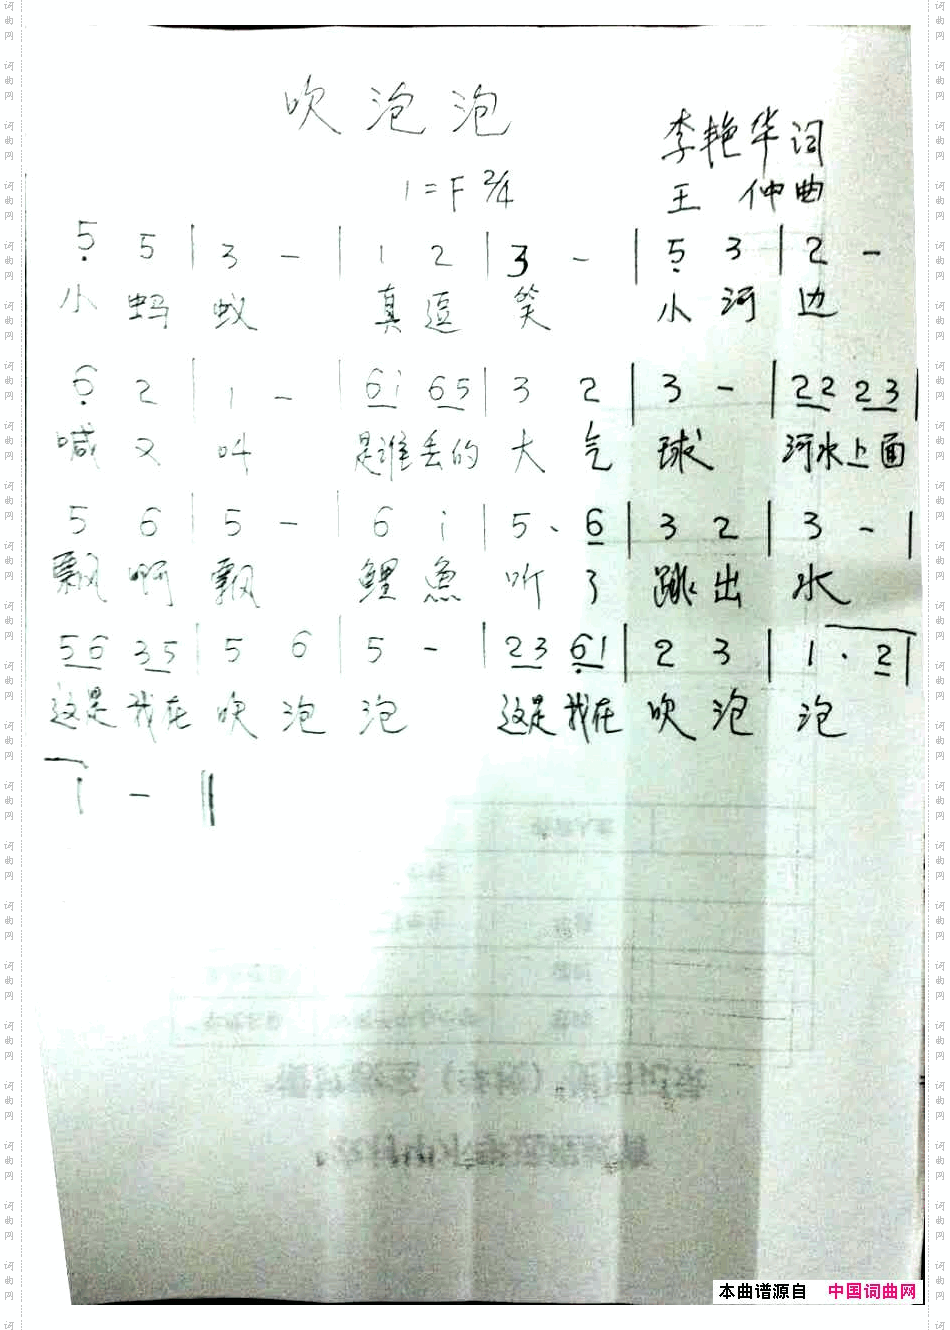 吹泡泡
李艳华词
1=F 2/4
王 仲曲
5̣ 5 | 3 - | 1 2 | 3 - | 5̣ 3 | 2 -
小 蚂 蚁 真 逗 笑 小 河 边
6̣ 2 | 1 - | 6i 65 | 3 2 | 3 - | 22 23 |
喊 又 叫 是谁丢的 大 气 球 河水上面
5 6 | 5 - | 6 i | 5 · 6 | 3 2 | 3 - |
飘 啊 飘 鲤 鱼 听 了 跳 出 水
56 35 | 5 6 | 5 - | 23 6̣1 | 2 3 | 1 · 2 |
这是我在 吹 泡 泡 这是我在 吹 泡 泡
1 - ‖
本曲谱源自 中国词曲网